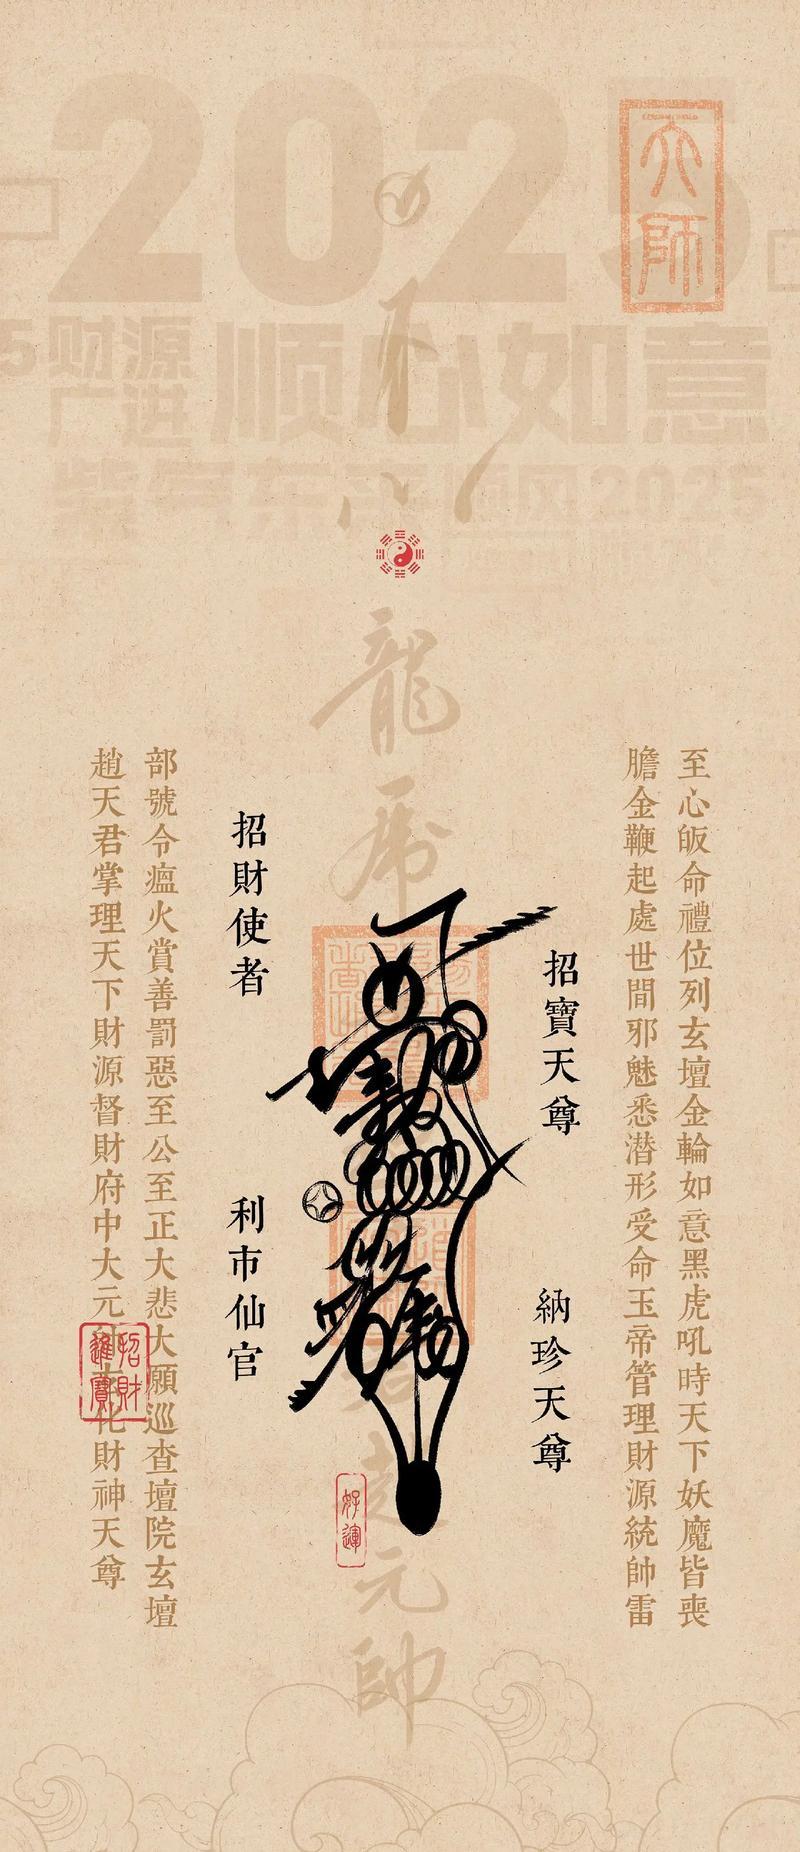 2025
天師
财源广进
顺心如意
紫气东来
顺风2025
龍
虎
至心皈命禮位列玄壇金輪如意黑虎吼時天下妖魔皆喪
膽金鞭起處世間邪魅悉潜形受命玉帝管理財源統帥雷
招寶天尊
納珍天尊
招財使者
利市仙官
部號令瘟火賞善罰惡至公至正大悲大願巡查壇院玄壇
趙天君掌理天下財源督財府中大元化財神天尊
招財進寶
好運
元帥